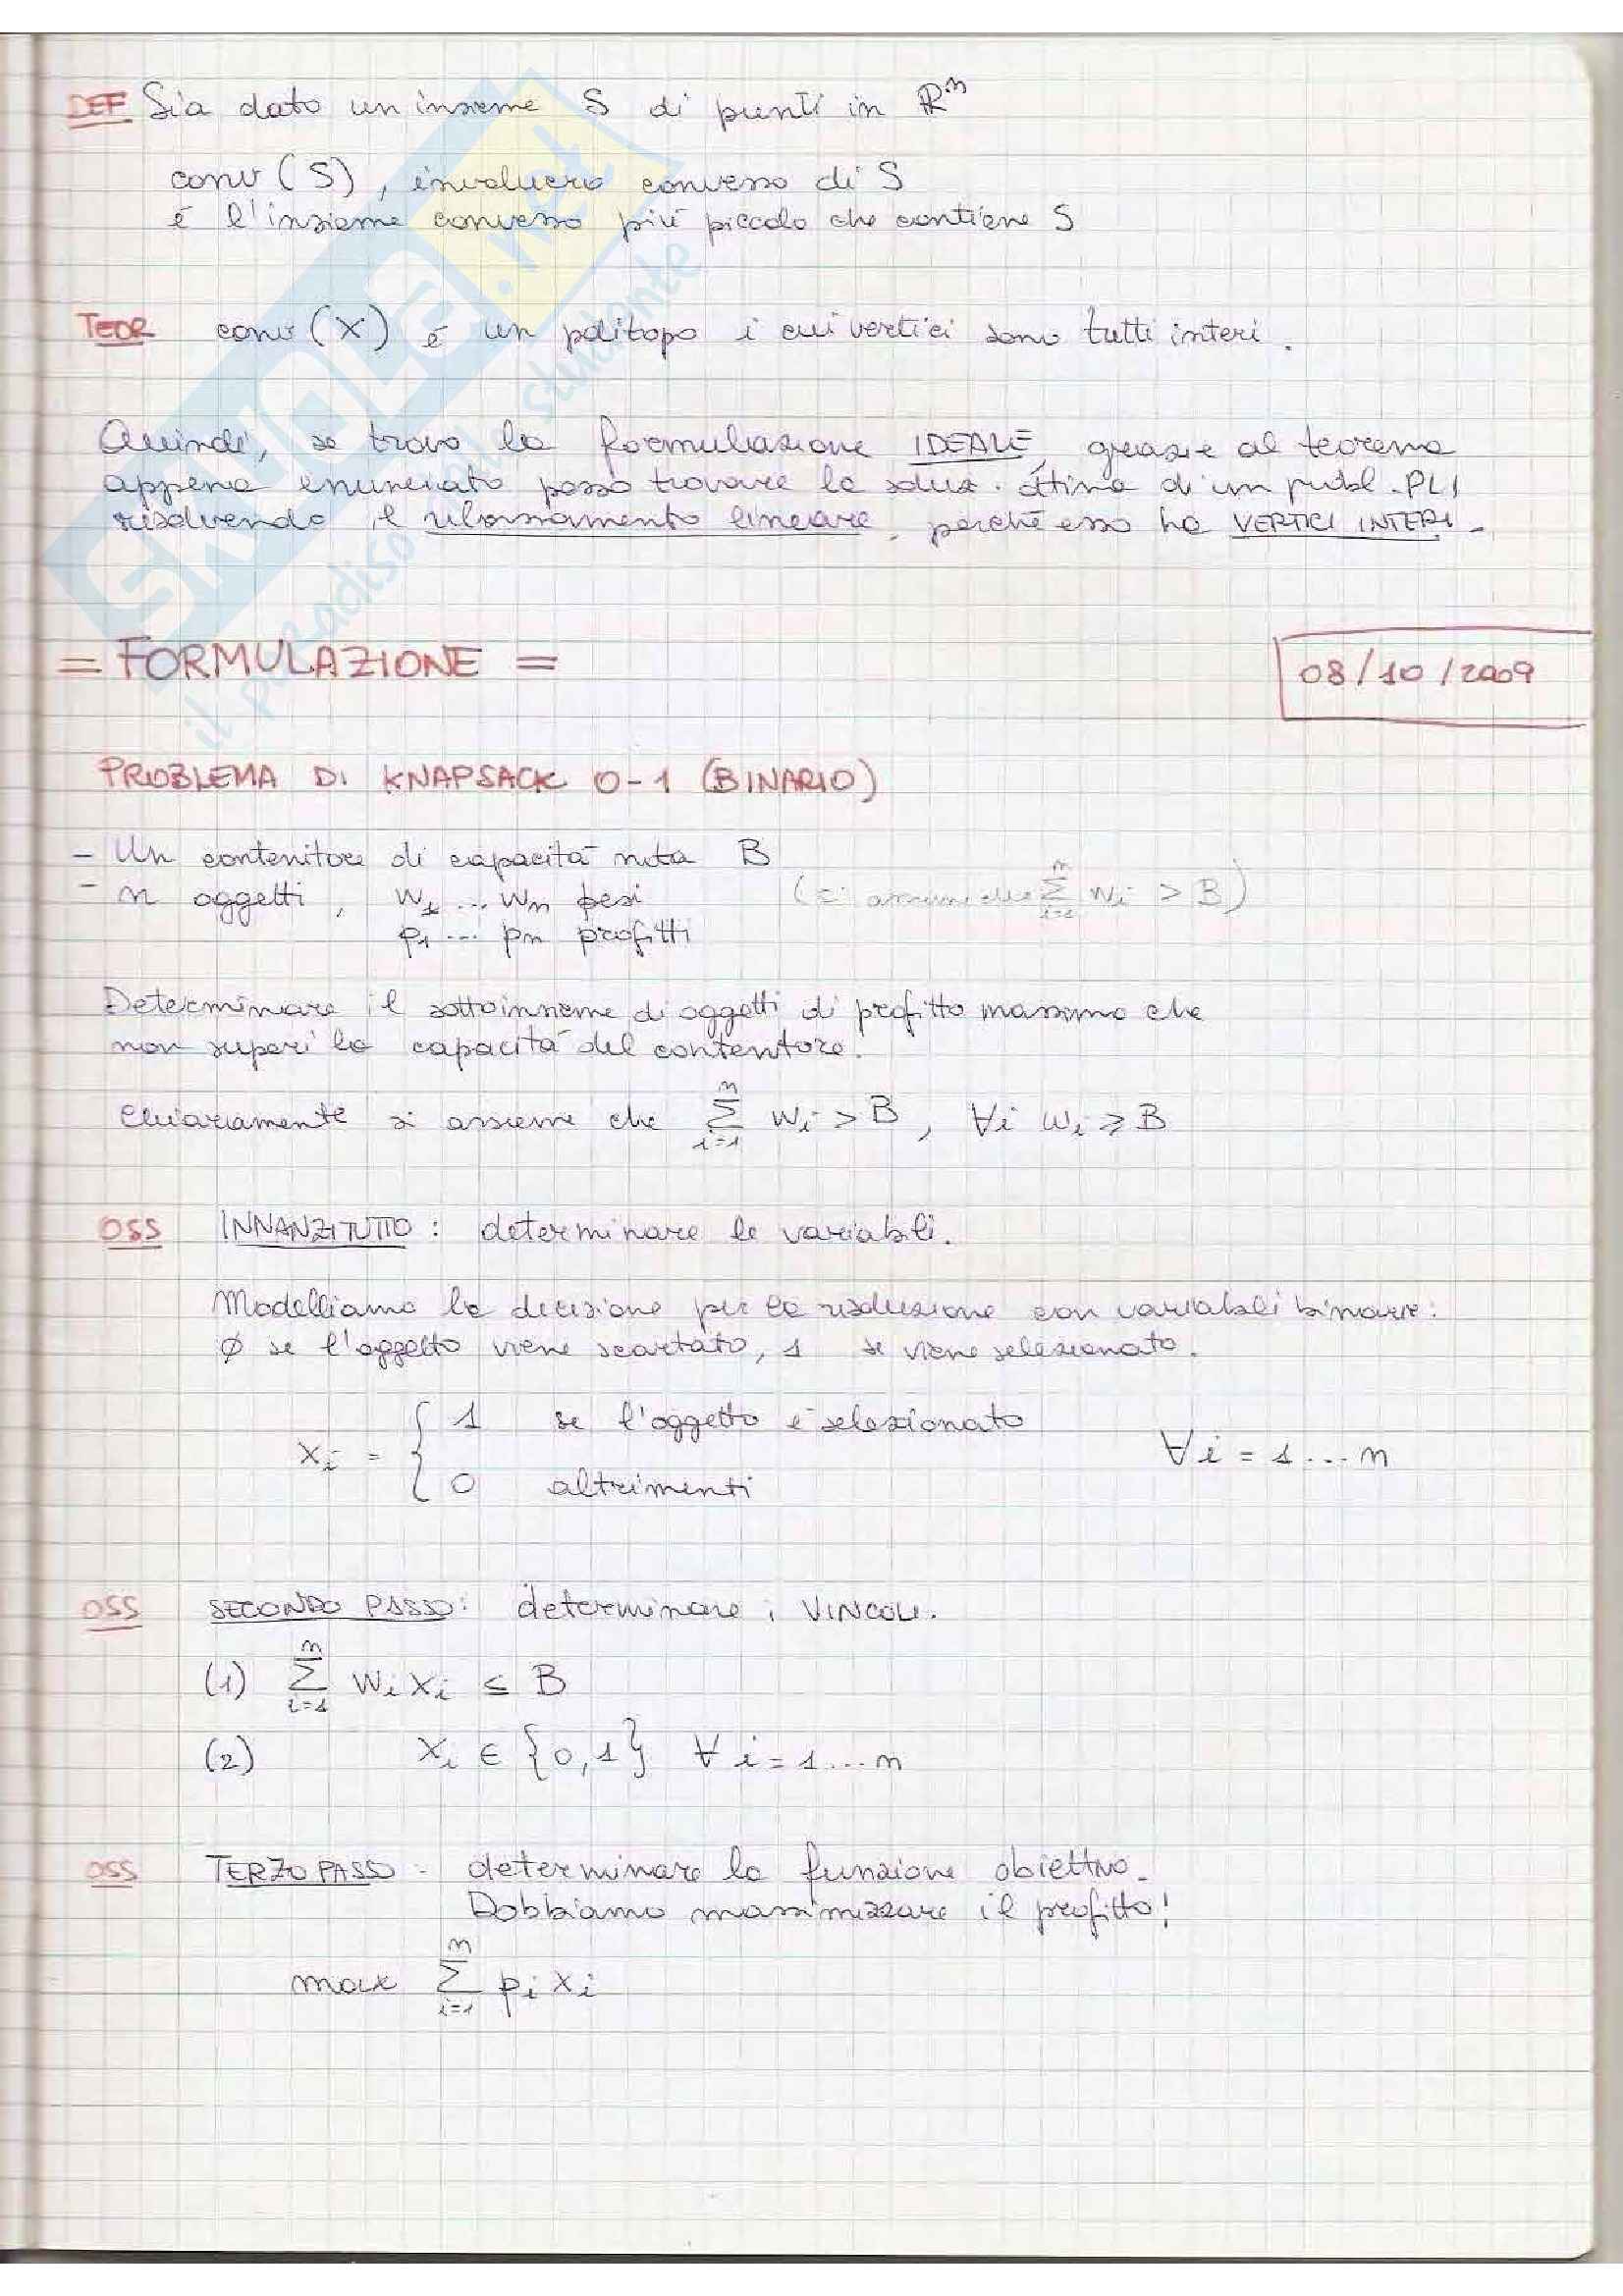 DEF Sia dato un insieme S di punti in ℝⁿ
conv (S), involucro convesso di S
è l'insieme convesso più piccolo che contiene S
TEOR conv (X) è un politopo i cui vertici sono tutti interi.
Quindi, se trovo la formulazione IDEALE, grazie al teorema
appena enunciato posso trovare la soluz. ottima di un probl. PLI
risolvendo il rilassamento lineare, perché esso ha VERTICI INTERI.
= FORMULAZIONE =
08/10/2009
PROBLEMA DI KNAPSACK 0-1 (BINARIO)
- Un contenitore di capacità nota B
- n oggetti, w₁ ... wₙ pesi (si assume che ∑ᵢ₌₁ⁿ wᵢ > B)
p₁ ... pₙ profitti
Determinare il sottoinsieme di oggetti di profitto massimo che
non superi la capacità del contenitore.
Chiaramente si assume che ∑ᵢ₌₁ⁿ wᵢ > B, ∀i wᵢ ⩾ B
OSS INNANZITUTTO: determinare le variabili.
Modelliamo la decisione per la risoluzione con variabili binarie:
Ø se l'oggetto viene scartato, 1 se viene selezionato.
xᵢ = { 1 se l'oggetto è selezionato
0 altrimenti ∀i = 1 ... n
OSS SECONDO PASSO: determinare i VINCOLI.
(1) ∑ᵢ₌₁ⁿ wᵢxᵢ ≤ B
(2) xᵢ ∈ {0,1} ∀ i = 1 ... n
OSS TERZO PASSO: determinare la funzione obiettivo.
Dobbiamo massimizzare il profitto!
max ∑ᵢ₌₁ⁿ pᵢxᵢ
SKUOLA.net
il paradiso dello studente